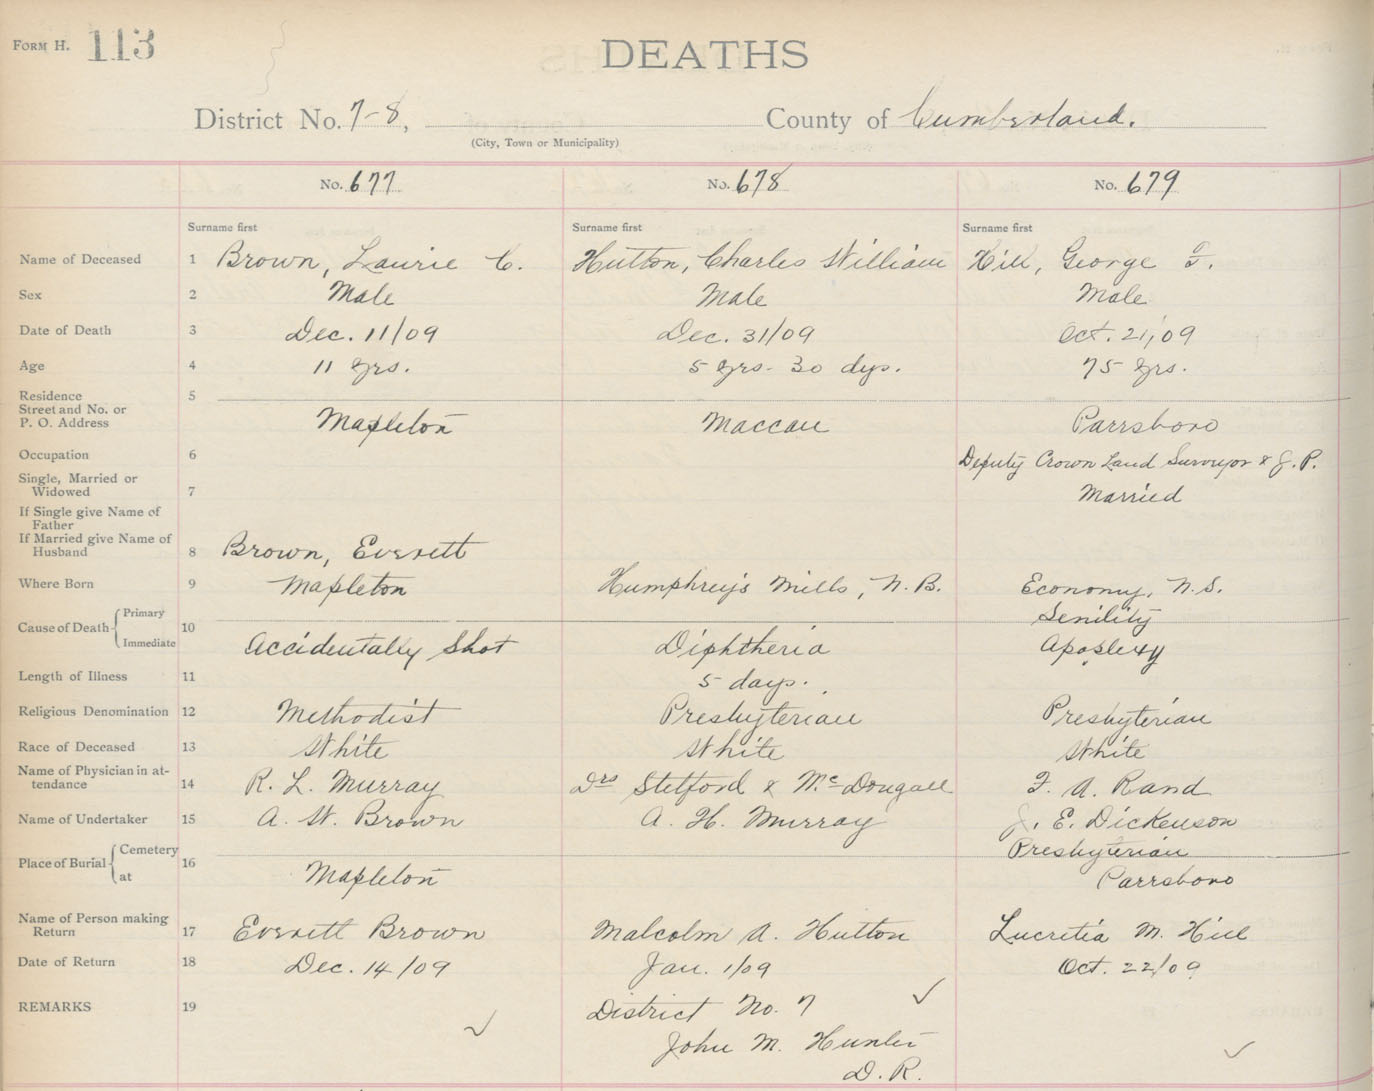 FORM H. 113
DEATHS
District No. 7-8, County of Cumberland.
(City, Town or Municipality)
No. 677 No. 678 No. 679
Surname first Surname first Surname first
Name of Deceased 1 Brown, Laurie C. Hutton, Charles William Hill, George F.
Sex 2 Male Male Male
Date of Death 3 Dec. 11/09 Dec. 31/09 Oct. 21/09
Age 4 11 yrs. 5 yrs. 30 dys. 75 yrs.
Residence 5
Street and No. or
P. O. Address Mapleton Maccan Parrsboro
Occupation 6 Deputy Crown Land Surveyor & J. P.
Single, Married or
Widowed 7 Married
If Single give Name of
Father
If Married give Name of
Husband 8 Brown, Everett
Where Born 9 Mapleton Humphreys Mills, N. B. Economy, N. S.
Cause of Death Primary 10 Senility
Immediate Accidentally Shot Diphtheria Apoplexy
Length of Illness 11 5 days.
Religious Denomination 12 Methodist Presbyterian Presbyterian
Race of Deceased 13 White White White
Name of Physician in at-
tendance 14 R. L. Murray Drs & McDougall F. A. Rand
Name of Undertaker 15 A. W. Brown A. H. Murray J. E. Dickenson
Place of Burial Cemetery 16 Presbyterian
at Mapleton Parrsboro
Name of Person making
Return 17 Everett Brown Malcolm A. Hutton Lucretia M. Hill
Date of Return 18 Dec. 14/09 Jan. 1/09 Oct. 22/09
REMARKS 19 District No. 7
John M. Hunter
D. R.